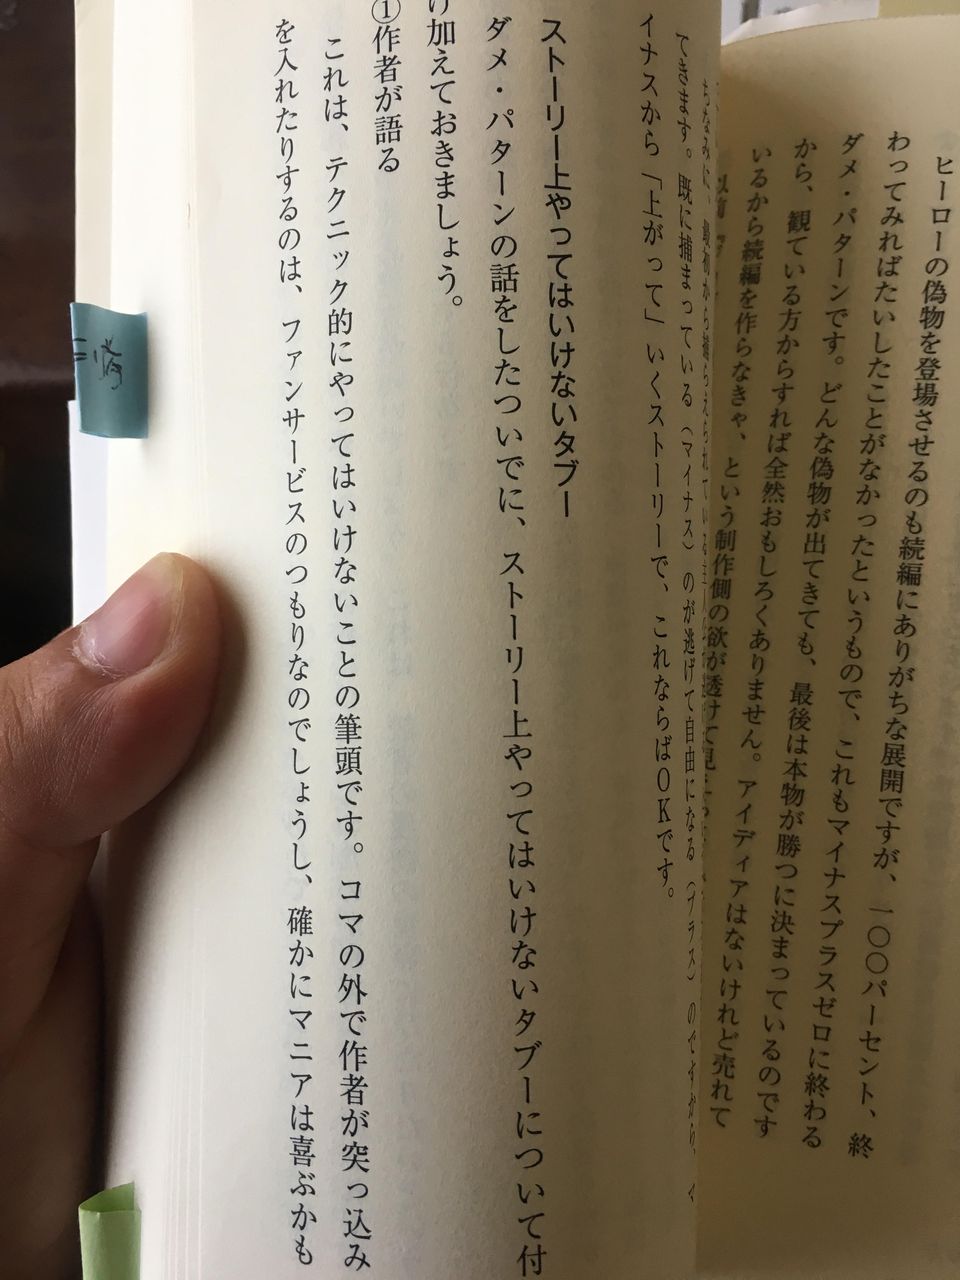 ヒーローの偽物を登場させるのも続編にありがちな展開ですが、一〇〇パーセント、終
わってみればたいしたことがなかったというもので、これもマイナスプラスゼロに終わる
ダメ・パターンです。どんな偽物が出てきても、最後は本物が勝つに決まっているのです
から、観ている方からすれば全然おもしろくありません。アイディアはないけれど売れて
いるから続編を作らなきゃ、という制作側の欲が透けて見
ちなみに、最初から捕らえられている
できます。既に捕まっている（マイナス）のが逃げて自由になる（プラス）のですから、マ
イナスから「上がって」いくストーリーで、これならばOKです。
ストーリー上やってはいけないタブー
ダメ・パターンの話をしたついでに、ストーリー上やってはいけないタブーについて付
け加えておきましょう。
①作者が語る
これは、テクニック的にやってはいけないことの筆頭です。コマの外で作者が突っ込み
を入れたりするのは、ファンサービスのつもりなのでしょうし、確かにマニアは喜ぶかも